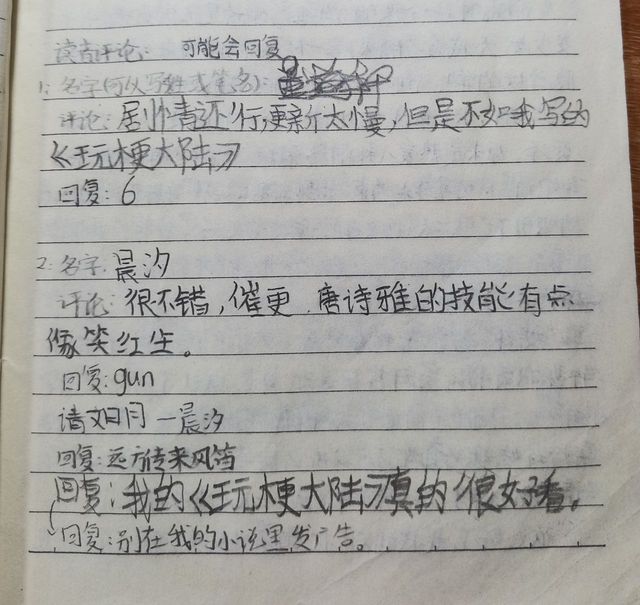 读者评论: 可能会回复
1. 名字(可以写姓或笔名):
评论: 剧情还行,更新太慢,但是不如我写的
《玩梗大陆》
回复: 6
2. 名字: 晨汐
评论: 很不错,催更 唐诗雅的技能有点
像笑红尘。
回复: gun
请文明用 —晨汐
回复: 远方传来风笛
回复: 我的《玩梗大陆》真的很好看。
回复: 别在我的小说里发广告。